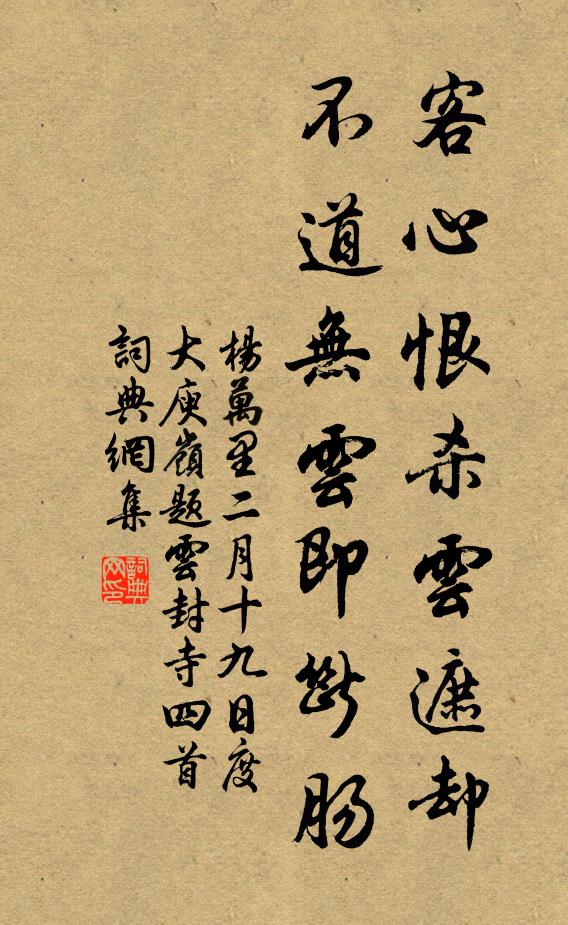 客心恨杀雲遮却
不道無雲即斷肠
楊萬里二月十九日度
大庾嶺題雲封寺四首
詞典網集
詞典網印